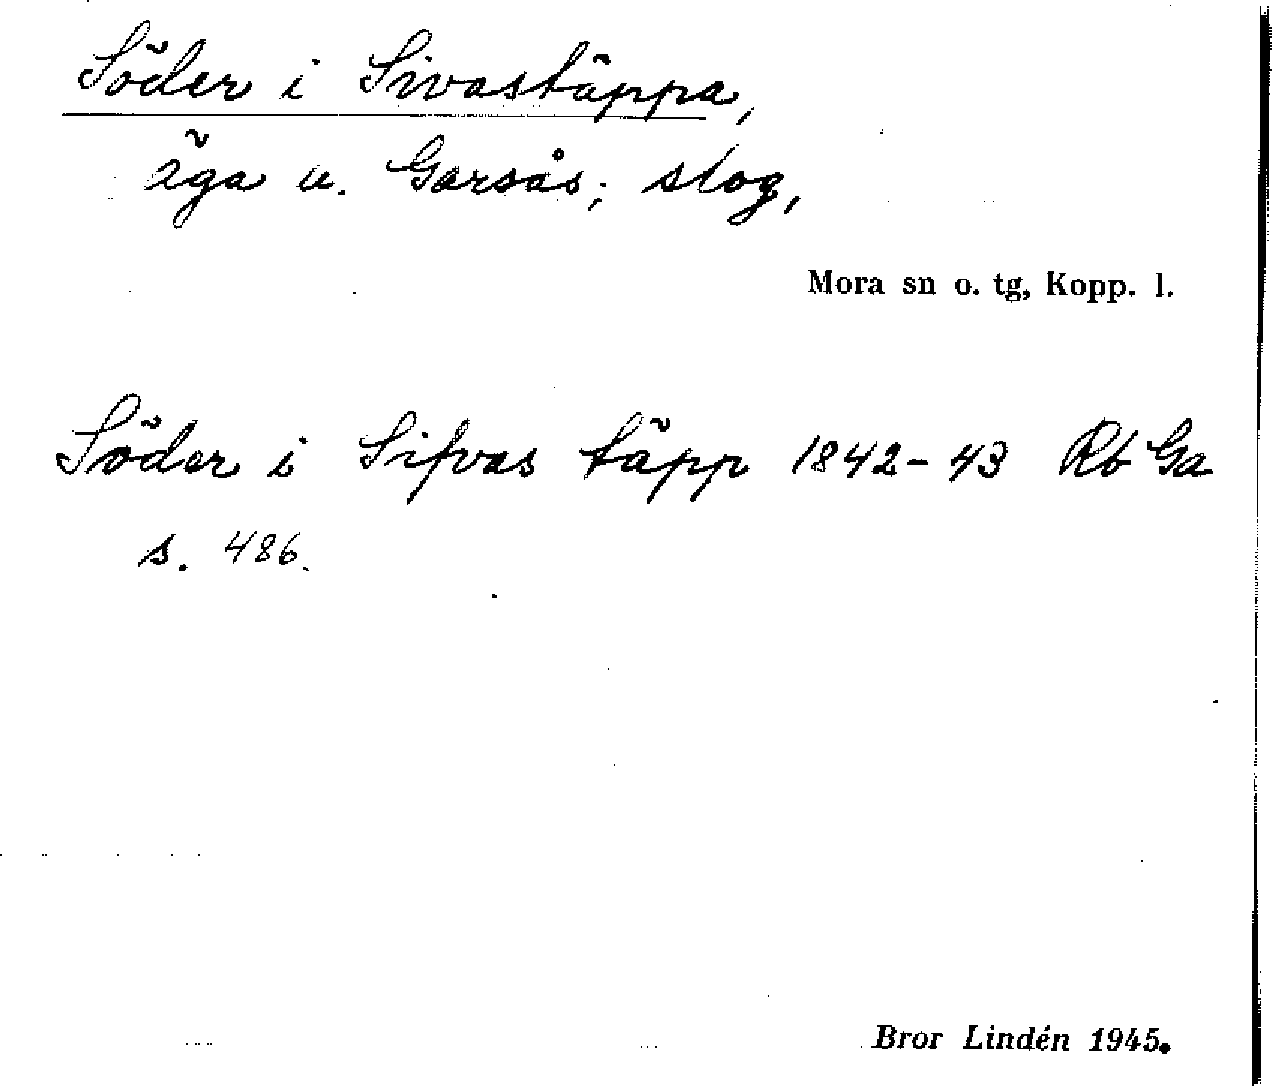 Söder i Sivastäppa,
äga u. Garsås; slog,
Mora sn o. tg, Kopp. l.
Söder i Sifvas täpp 1842-43 Rb Ga
s. 486.
Bror Lindén 1945.